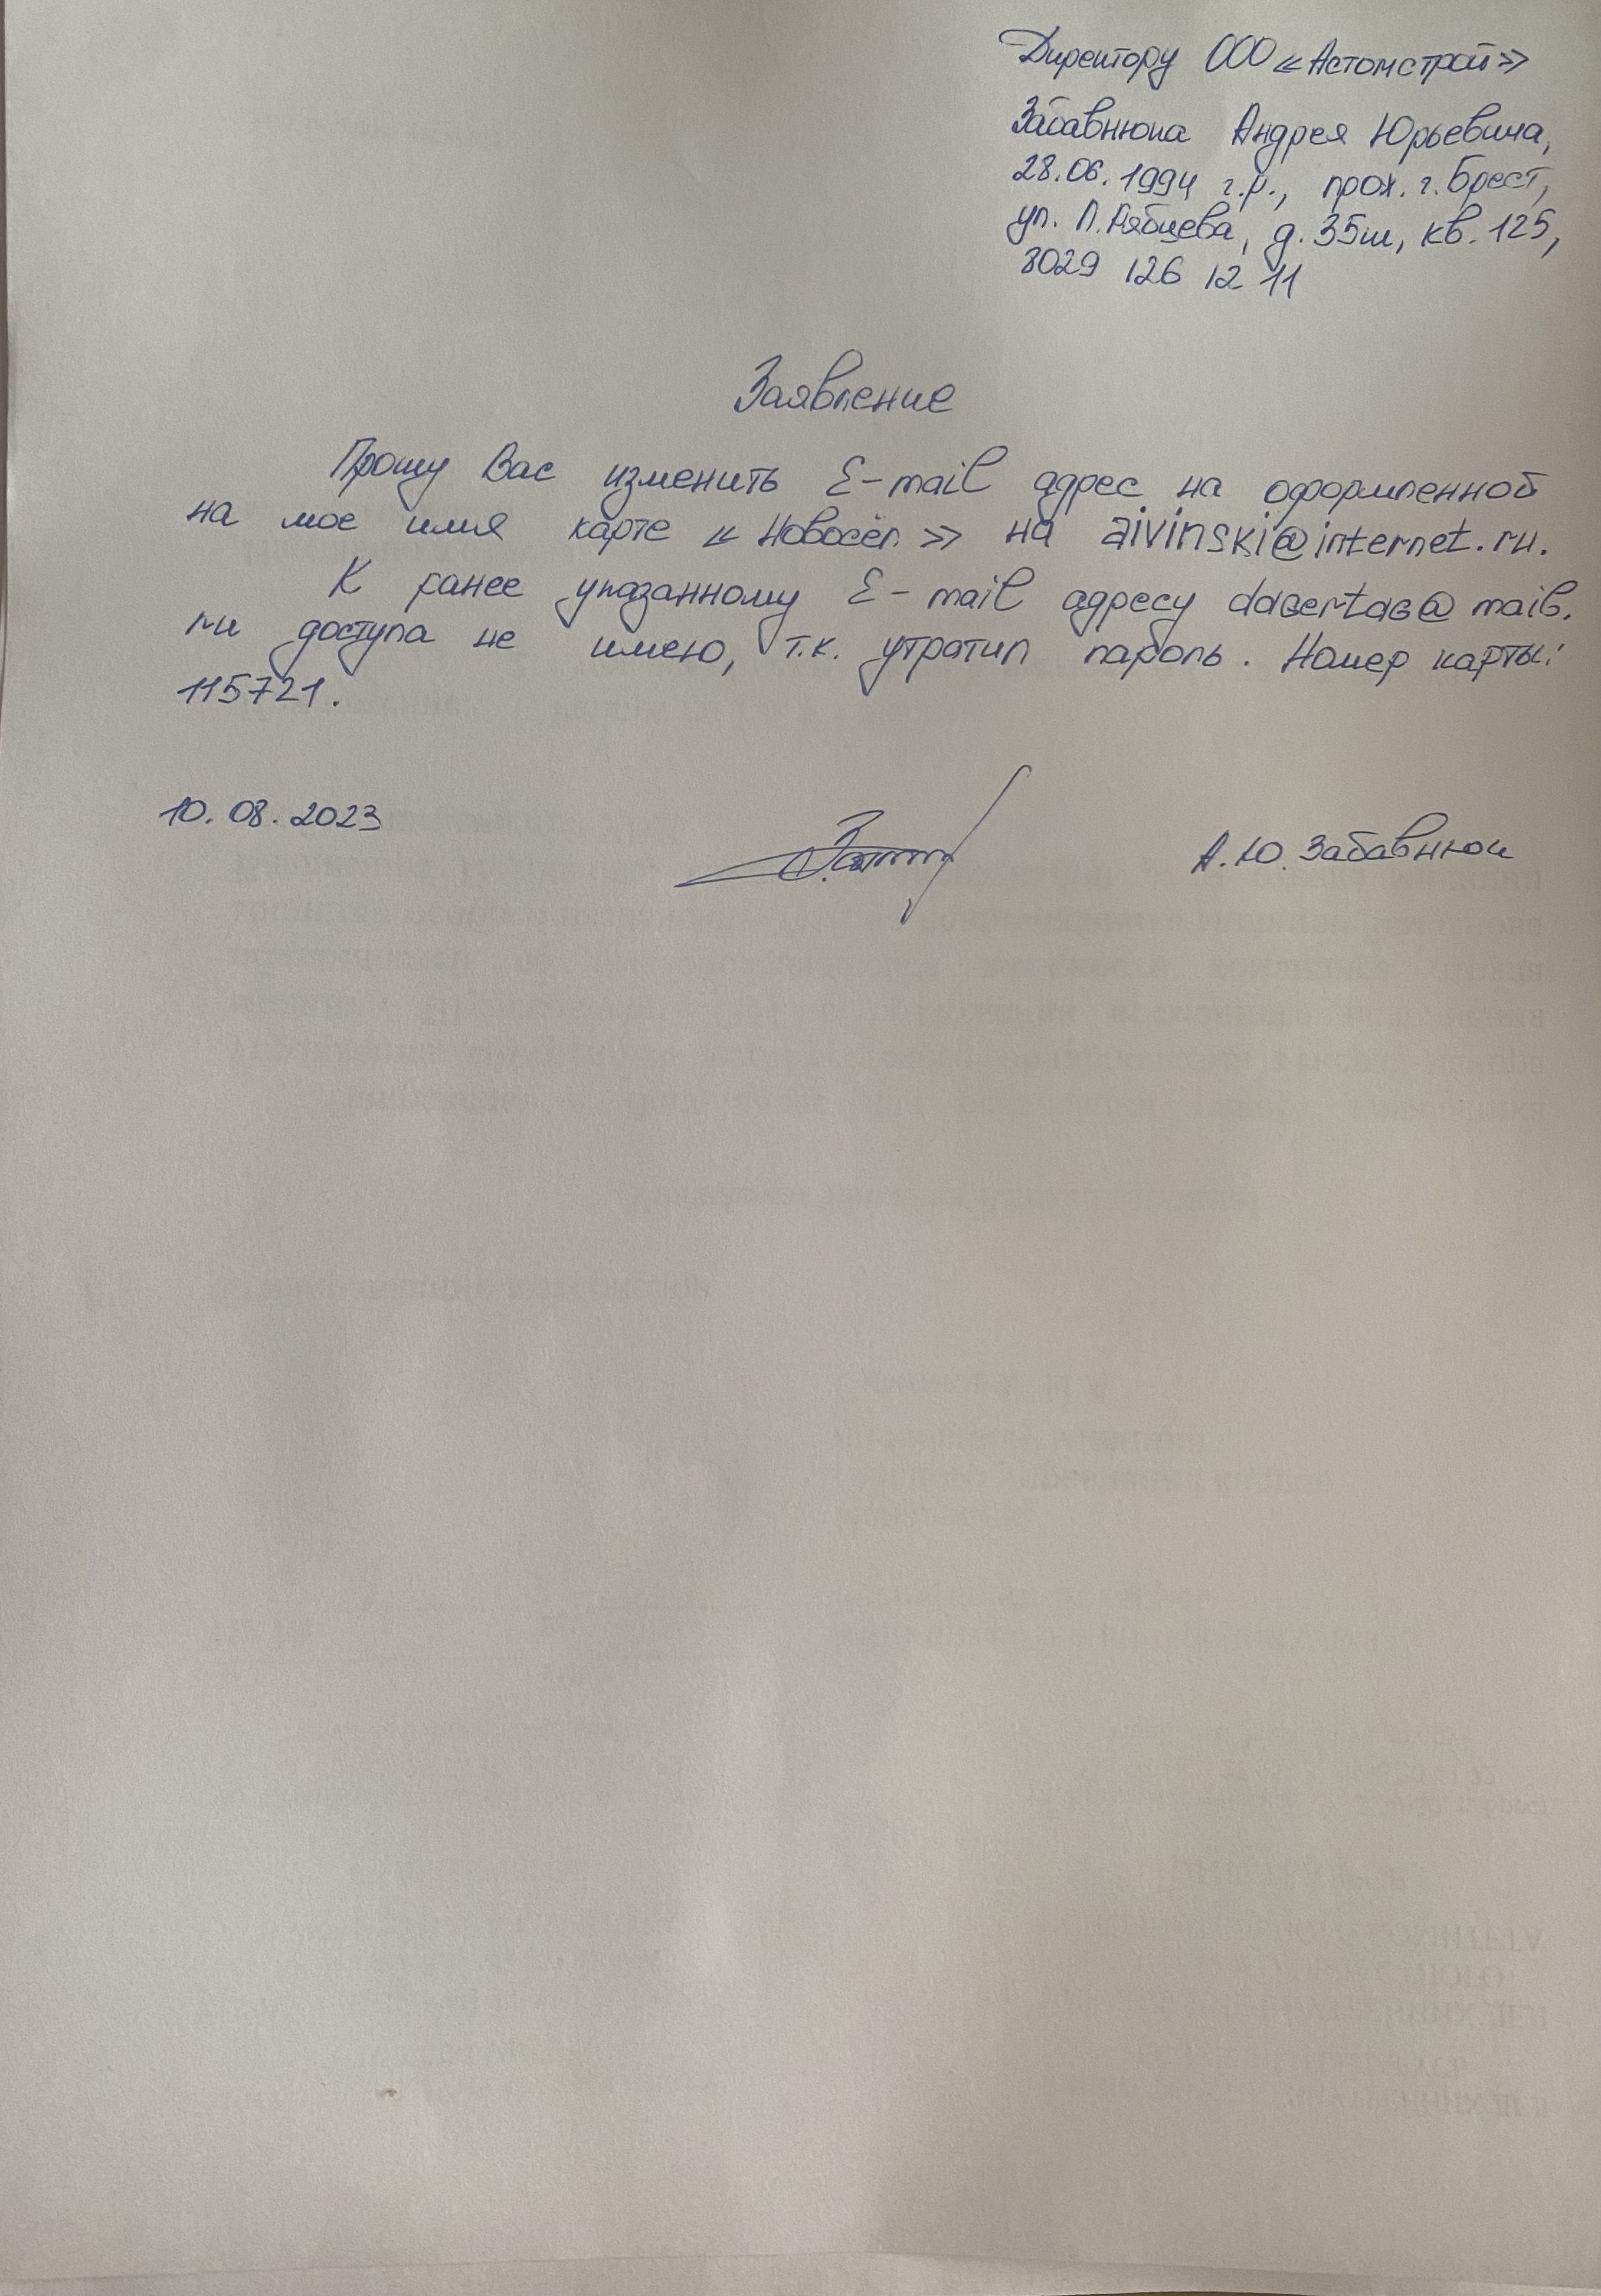 Директору ООО «Астомстрой»
Забавнюка Андрея Юрьевича,
28.06.1994 г.р., прож. г. Брест,
ул. Л. Рябцева, д. 35ш, кв. 125,
8029 126 12 11
Заявление
Прошу Вас изменить E-mail адрес на оформленной
на мое имя карте «Новосёл» на aivinski@internet.ru.
К ранее указанному E-mail адресу
ru доступа не имею, т.к. утратил пароль. Номер карты:
115721.
10.08.2023
А.Ю. Забавнюк